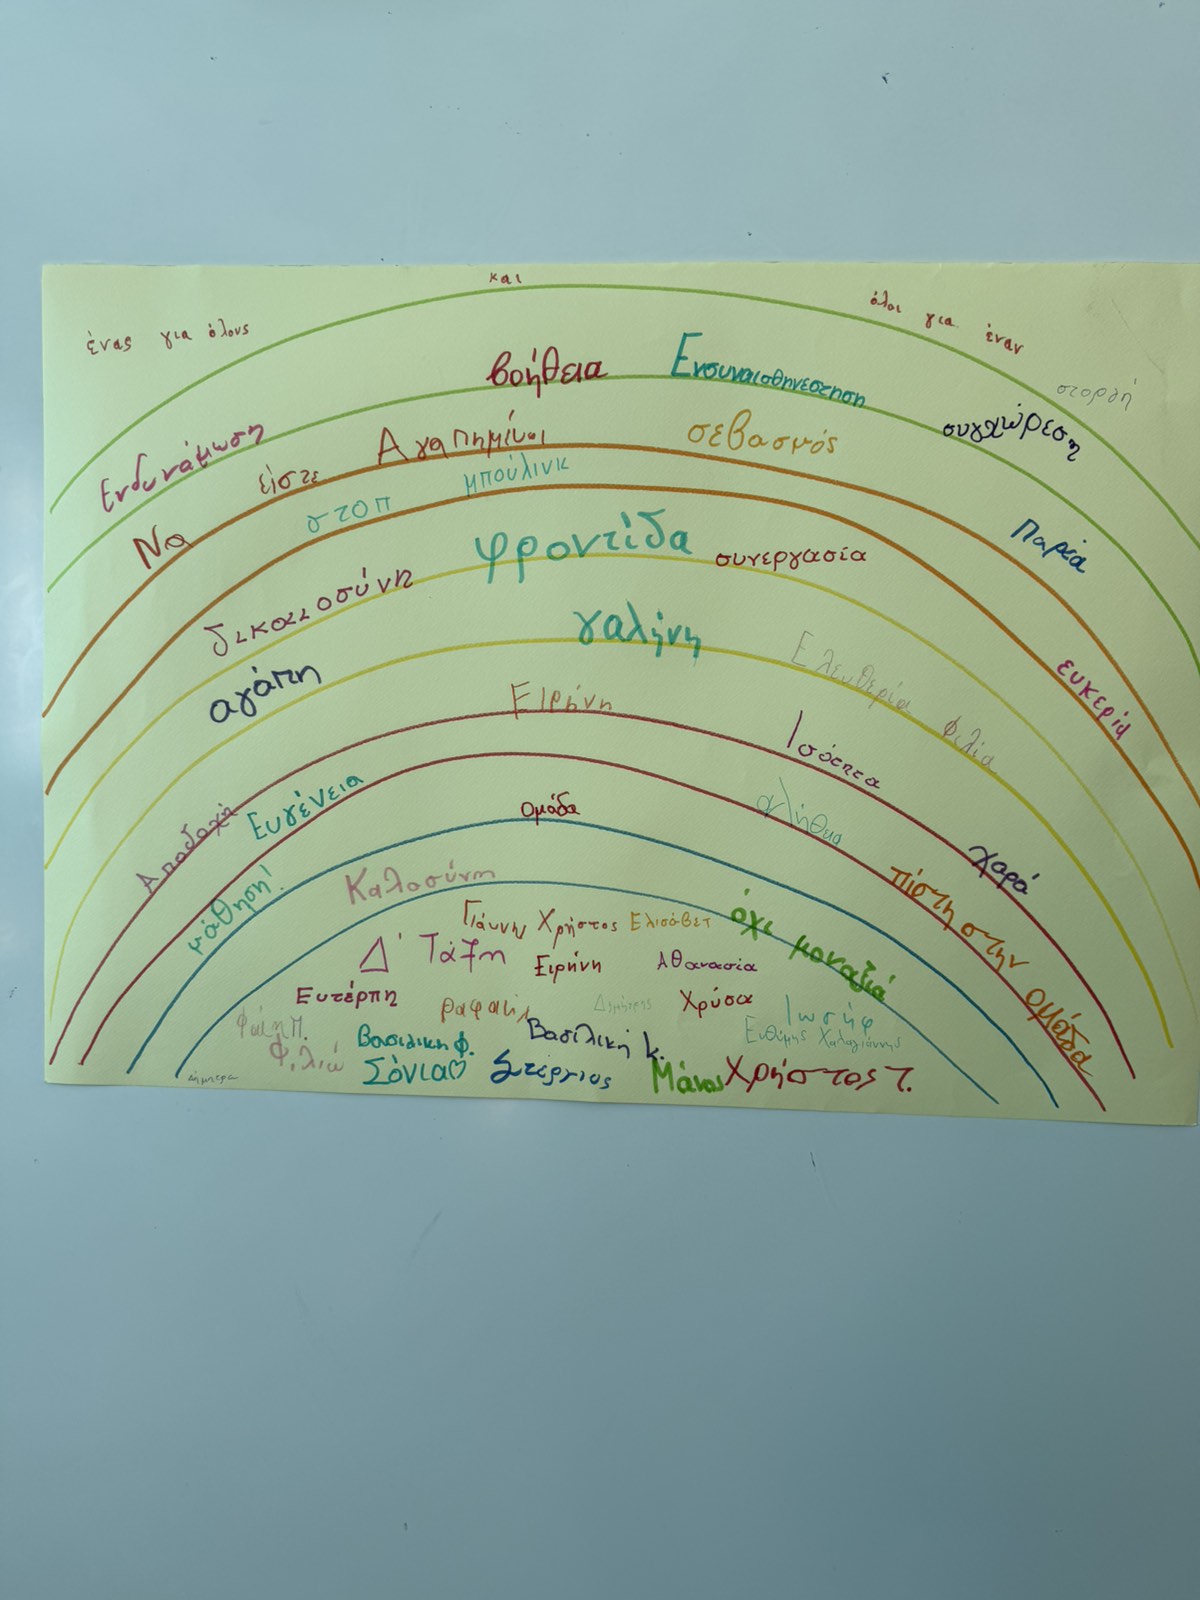 και
ένας για όλους
όλοι για έναν
βοήθεια
Ενσυναισθηνεστηση
στοργή
Ενδυνάμωση
συγχώρεση
Να είστε Αγαπημένοι
σεβασμός
στοπ μπούλινκ
Παρέα
φροντίδα
συνεργασία
δικαιοσύνη
γαλήνη
αγάπη
Ελευθερία
φιλία
ευκερία
Ειρήνη
Ισότητα
Αποδοχή
Ευγένεια
Ομάδα
χαρά
μάθηση!
Καλοσύνη
πίστη στην ομάδα
όχι μοναξιά
Γιάννης Χρήστος Ελισάβετ
Δ' Τάξη
Ειρήνη
Αθανασία
Ευτέρπη
Χρύσα
Ιωσήφ
Βασιλικη φ.
Βασιλική κ.
Φιλιώ
Σόνια♡
Στέργιος
Μάνος
Χρήστος Τ.